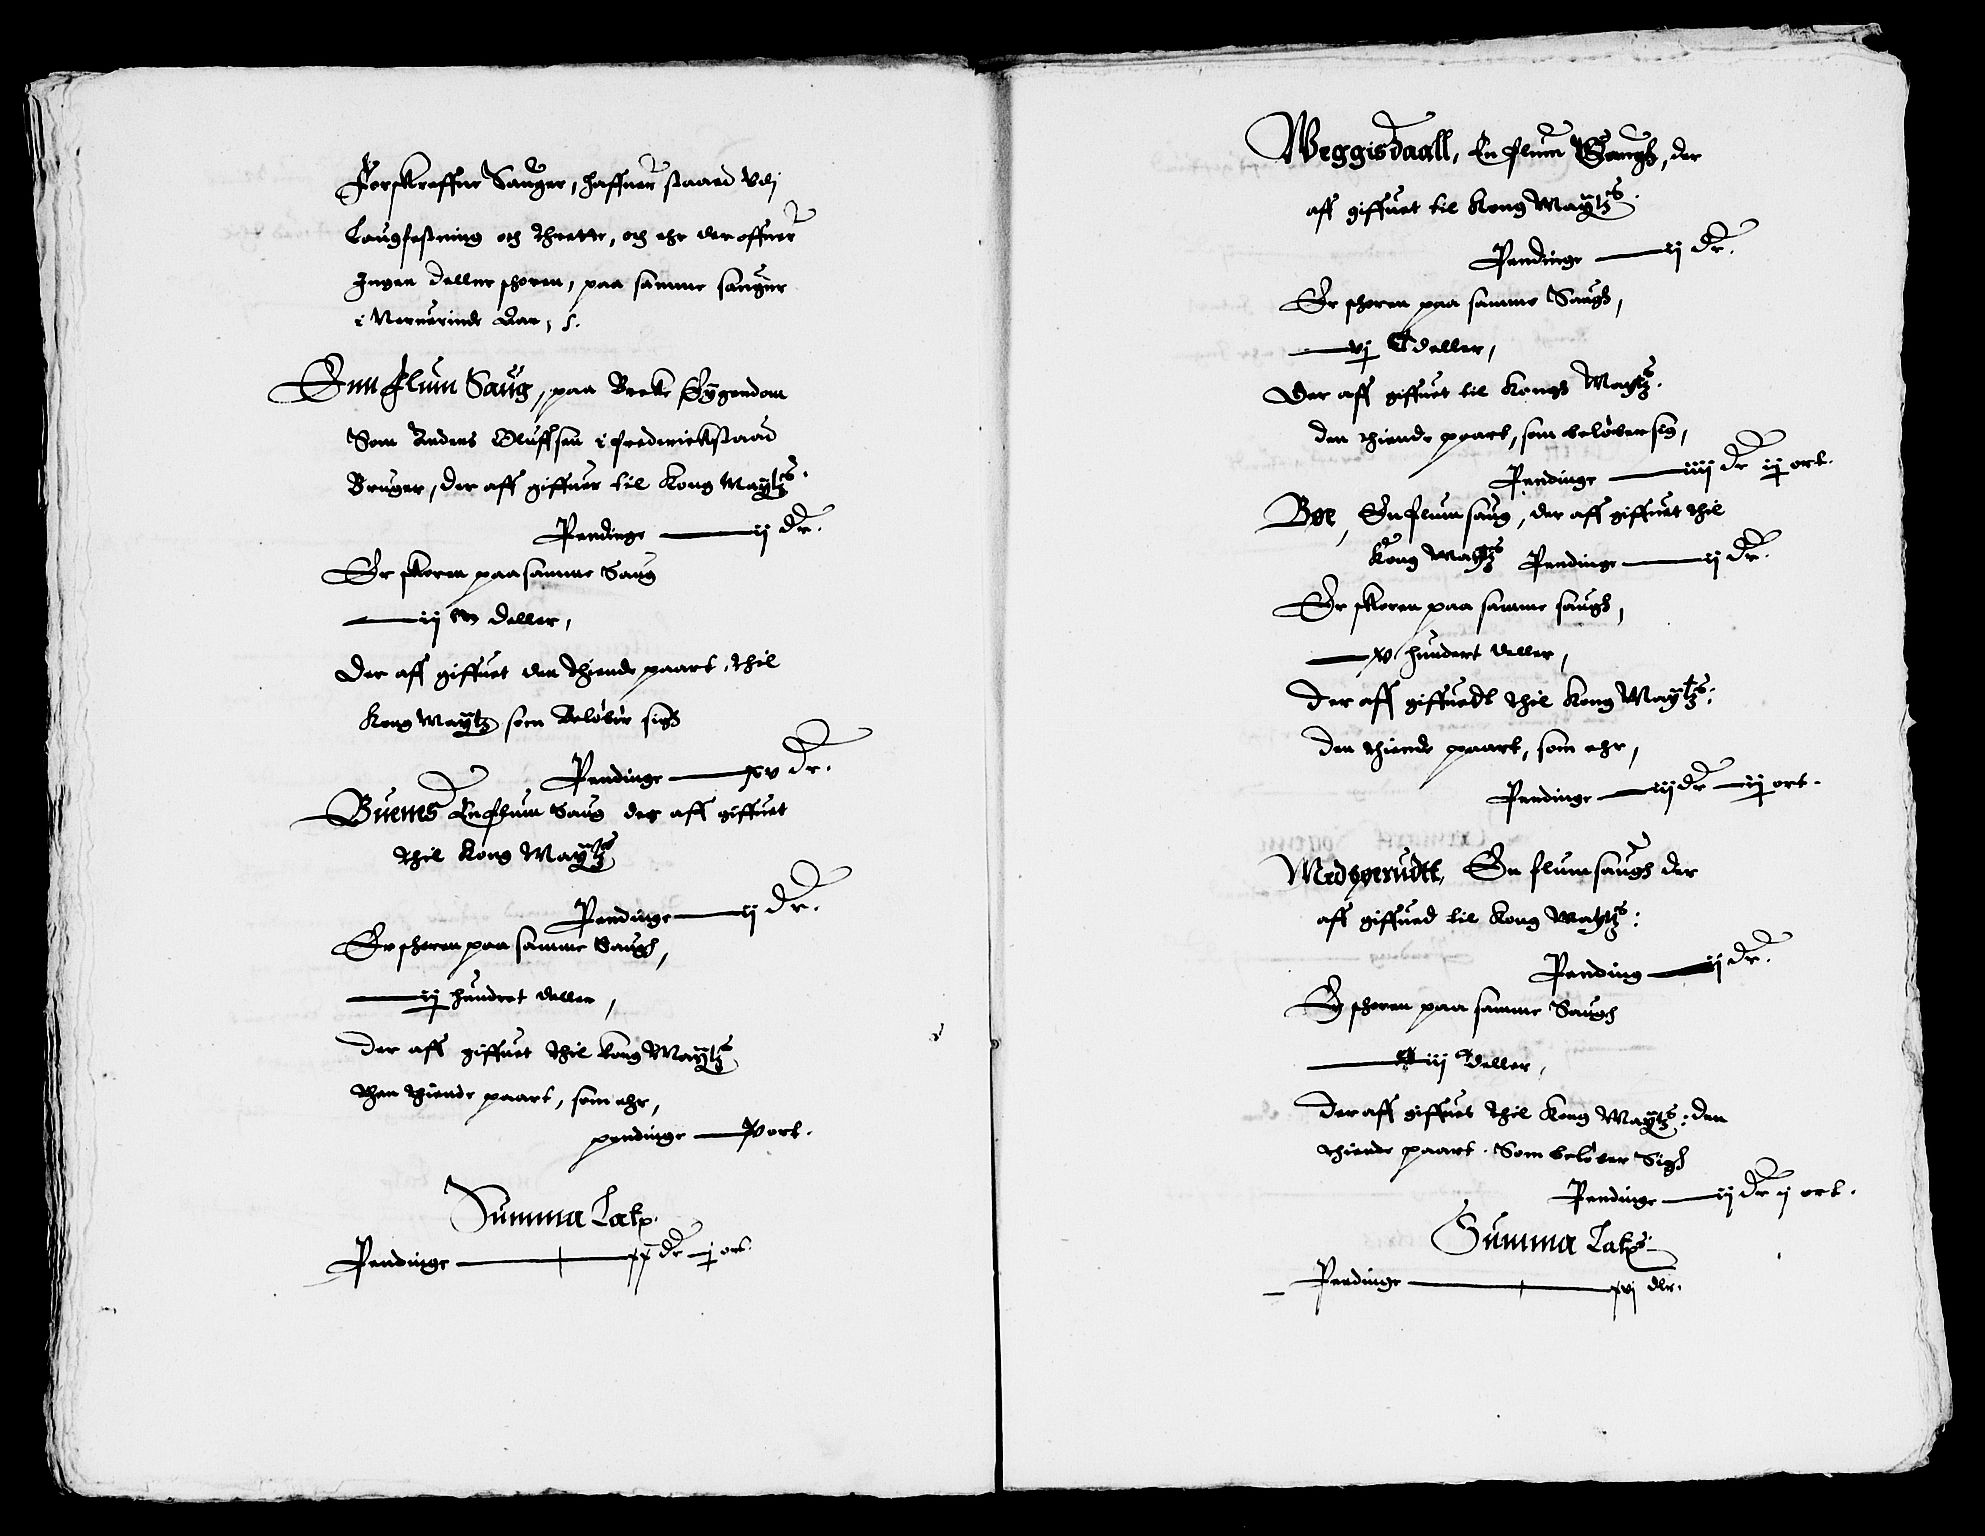 Forskreffne Sauger, haffuer staaed Vdj
Laugfestning och thrette, och ehr der offuer
Ingen deller schoren, paa samme sauger
i Neruerinde Aar, s.
Enn flum Saug, paa Brekke Eygendom
Som Anders Oluffsen i frederickstaad
Bruger, der aff giffuer til Kong Maÿtz.
Pendinge — ij dr.
Er skoren paa samme Saug
— ij m deller,
Der aff giffuet den thiende paart, thil
Kong Maÿtz som Belöber sigh
Pendinge — xv dr.
Buenes En flum Saug der aff giffuet
thil Kong Maÿtz
Pendinge — ij dr.
Er schoren paa samme Saugh,
— ij hundret deller,
der aff giffuet thil kong Maÿtz
then thiende paart, som ehr,
pendinge — V ort.
Summa Latp.
Pendinge — xx dr — j ort
Weggisdaall, En flum Saugh, der
aff giffuet til Kong Maÿtz.
Pendinge — ij dr.
Er schoren paa samme Saugh,
— vj C deller,
Der aff giffuet til Kongh Maytz.
den thiende paart, som belöber sig,
Pendinge — iiij dr ij ort.
Bøe, En flum saug, der aff giffuet thil
Kong Maytz Pendinge — ij dr.
Er skoren paa samme saugh,
— V hundert deller,
Der aff giffuedt thil Kong Maÿtz:
den thiende paart, som ehr,
Pendinge — iij dr — ij ort.
En flum saugh der
aff giffued til Kong Maytz:
Pending — ij dr.
Er schoren paa samme Saugh
— iij C deller,
Der aff giffues thil Kong Maÿtz: den
thiende paart. Som belöber Sigh
Pendinge — ij dr j ort.
Summa Latps
Pendinge — xvj dlr.